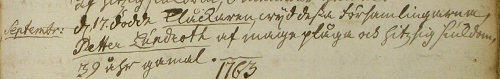 Septembr: d. 17. dödde Cluckaren wyd dessa församlingarna,
Petter Lundroth af mageplåga och hitzsig siukdom,
39 åhr gamal.
1763